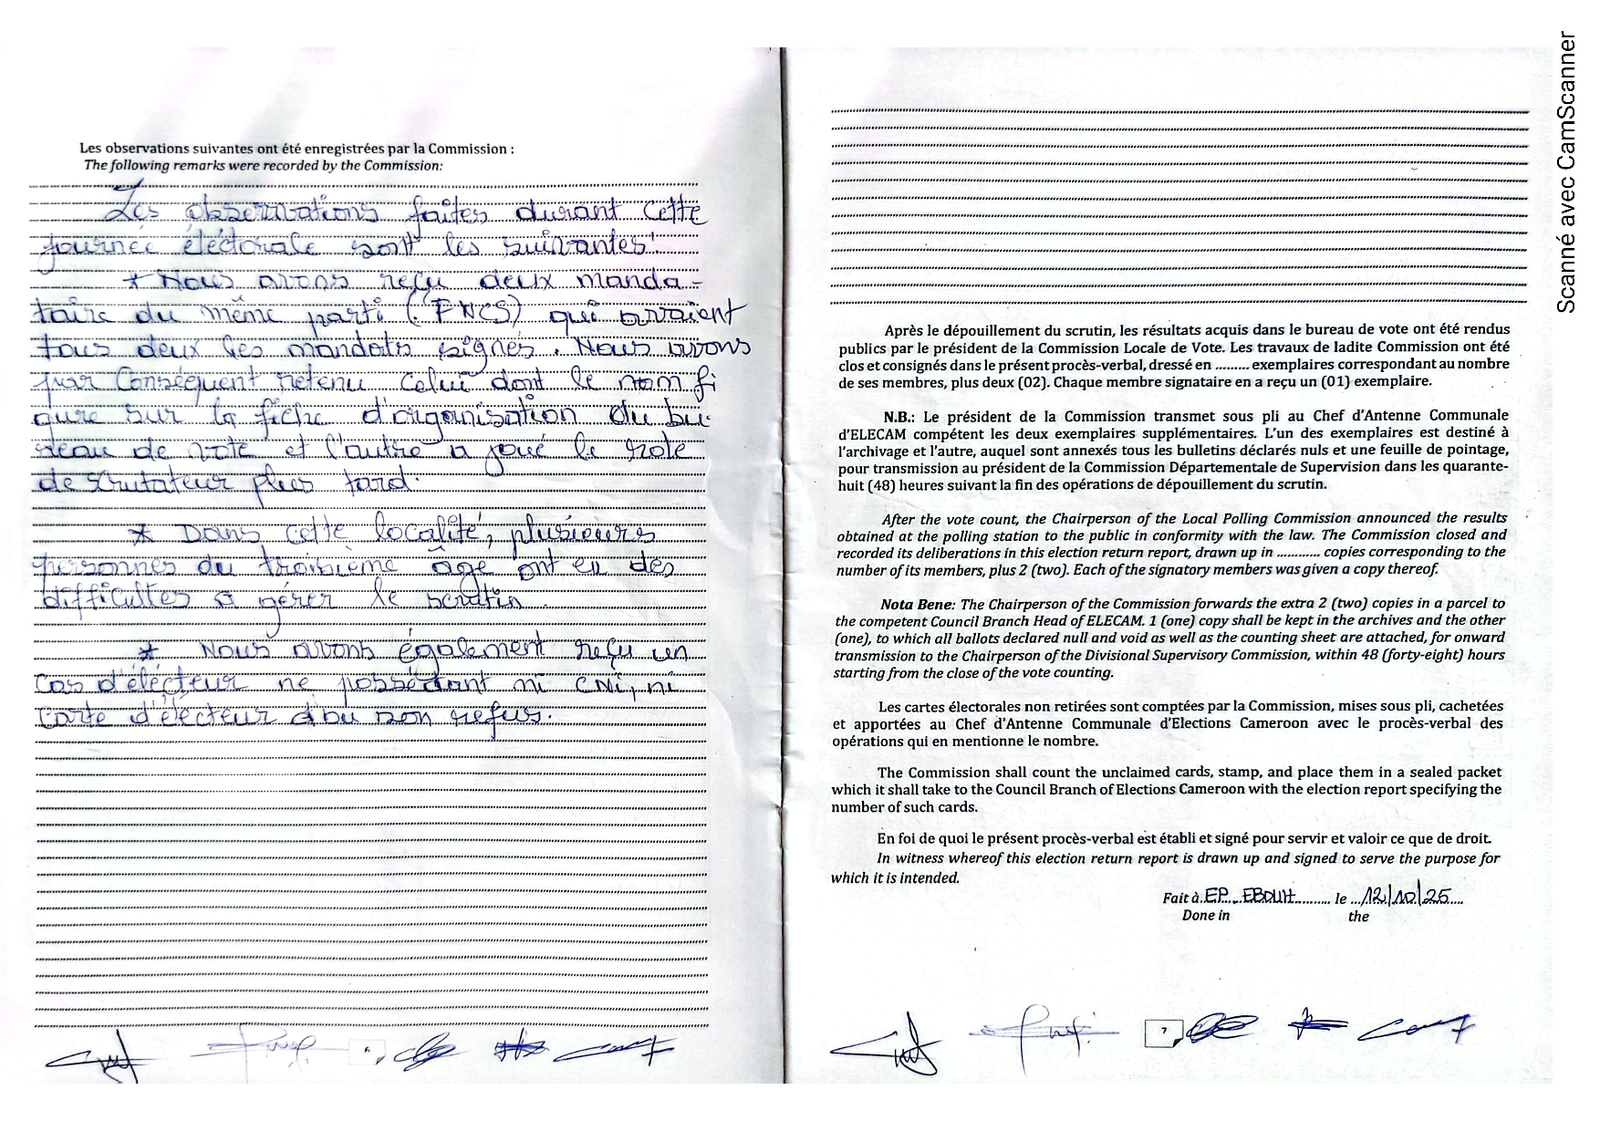 Les observations suivantes ont été enregistrées par la Commission :
The following remarks were recorded by the Commission:
Les observations faites durant cette
journée électorale sont les suivantes:
* Nous avons reçu deux manda-
taire du même parti (FNCS) qui avaient
tous deux les mandats signés. Nous avons
par Conséquent retenu celui dont le nom fi
gure sur la fiche d'organisation du bu-
reau de vote et l'autre a joué le role
de scrutateur plus tard.
* Dans cette localité, plusieurs
personnes du troisième âge ont eu des
difficultés à gérer le scrutin.
* Nous avons également reçu un
cas d'électeur ne possédant ni CNI, ni
carte d'électeur d'où non refus.
6
Après le dépouillement du scrutin, les résultats acquis dans le bureau de vote ont été rendus
publics par le président de la Commission Locale de Vote. Les travaux de ladite Commission ont été
clos et consignés dans le présent procès-verbal, dressé en ......... exemplaires correspondant au nombre
de ses membres, plus deux (02). Chaque membre signataire en a reçu un (01) exemplaire.
N.B.: Le président de la Commission transmet sous pli au Chef d'Antenne Communale
d'ELECAM compétent les deux exemplaires supplémentaires. L'un des exemplaires est destiné à
l'archivage et l'autre, auquel sont annexés tous les bulletins déclarés nuls et une feuille de pointage,
pour transmission au président de la Commission Départementale de Supervision dans les quarante-
huit (48) heures suivant la fin des opérations de dépouillement du scrutin.
After the vote count, the Chairperson of the Local Polling Commission announced the results
obtained at the polling station to the public in conformity with the law. The Commission closed and
recorded its deliberations in this election return report, drawn up in ........... copies corresponding to the
number of its members, plus 2 (two). Each of the signatory members was given a copy thereof.
Nota Bene: The Chairperson of the Commission forwards the extra 2 (two) copies in a parcel to
the competent Council Branch Head of ELECAM. 1 (one) copy shall be kept in the archives and the other
(one), to which all ballots declared null and void as well as the counting sheet are attached, for onward
transmission to the Chairperson of the Divisional Supervisory Commission, within 48 (forty-eight) hours
starting from the close of the vote counting.
Les cartes électorales non retirées sont comptées par la Commission, mises sous pli, cachetées
et apportées au Chef d'Antenne Communale d'Elections Cameroon avec le procès-verbal des
opérations qui en mentionne le nombre.
The Commission shall count the unclaimed cards, stamp, and place them in a sealed packet
which it shall take to the Council Branch of Elections Cameroon with the election report specifying the
number of such cards.
En foi de quoi le présent procès-verbal est établi et signé pour servir et valoir ce que de droit.
In witness whereof this election return report is drawn up and signed to serve the purpose for
which it is intended.
Fait à EP EBOUH le 12/10/25
Done in the
7
Scanné avec CamScanner